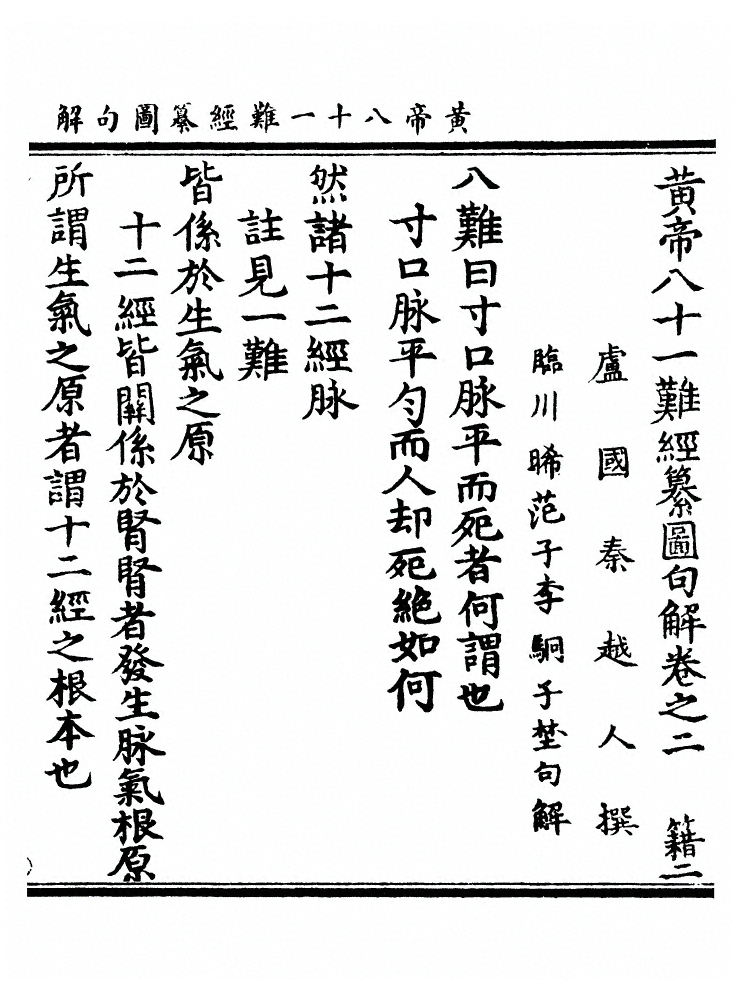 黃帝八十一難經纂圖句解
黃帝八十一難經纂圖句解卷之二　籍二
盧國秦越人撰
臨川晞范子李駉子埜句解
八難曰寸口脉平而死者何謂也
寸口脉平勻而人却死絶如何
然諸十二經脉
註見一難
皆係於生氣之原
十二經皆關係於腎腎者發生脉氣根原
所謂生氣之原者謂十二經之根本也